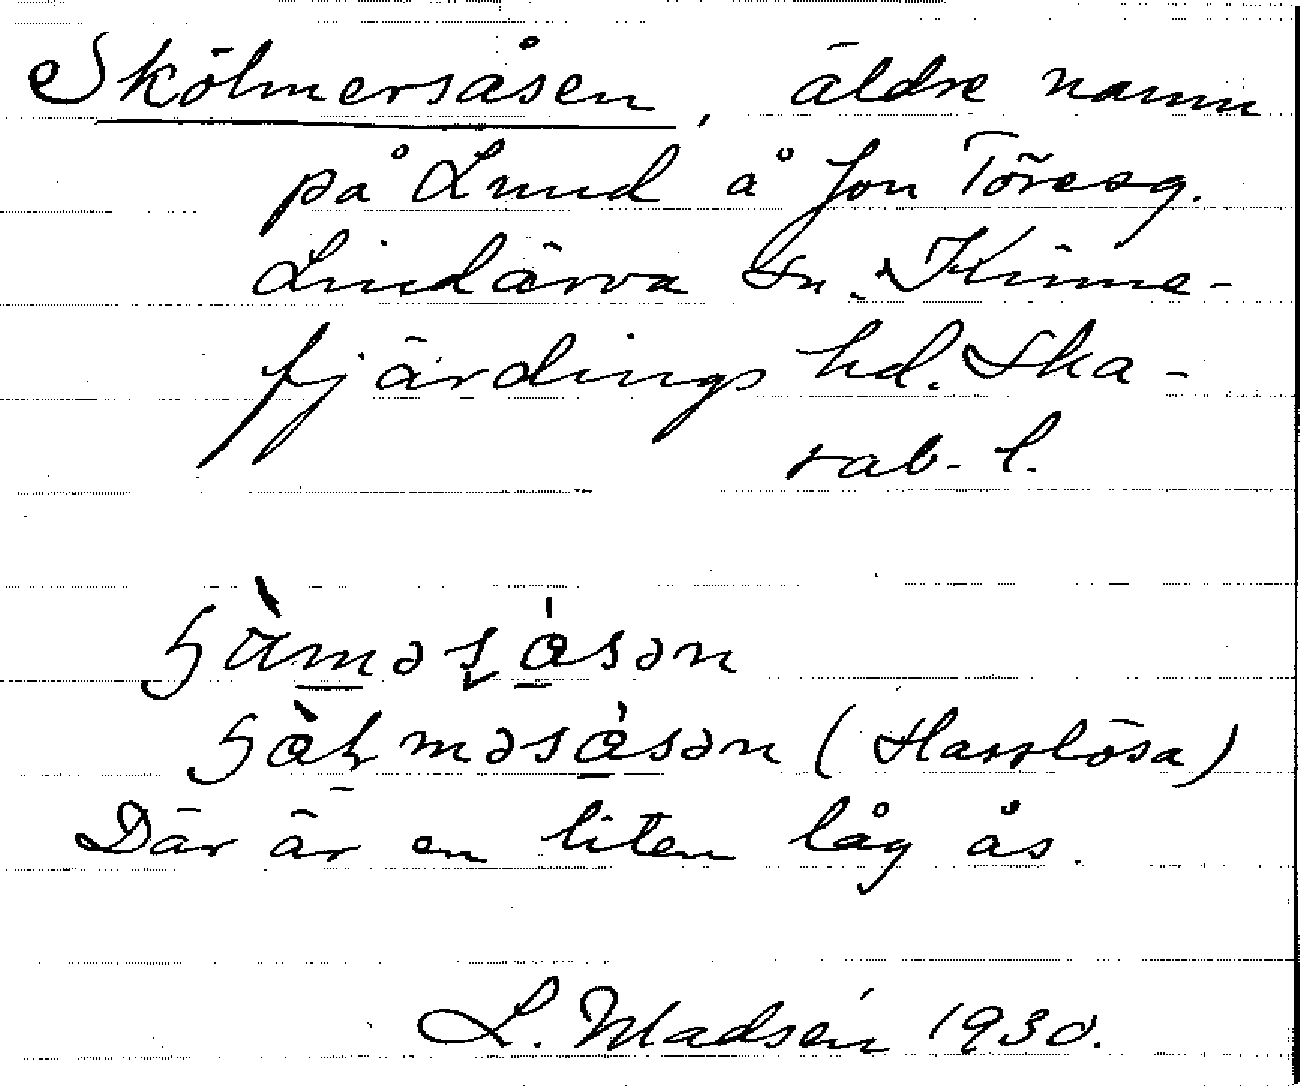 Skölmersåsen, äldre namn
på Lund å Jon Töresg.
Lindärva sn. Kinne-
fjärdings hd. Ska-
rab. l.
(Harslösa)
Där är en liten låg ås.
L. Madsén 1930.